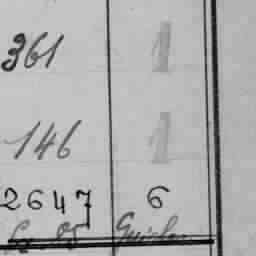 361 1
146 1
2647 6